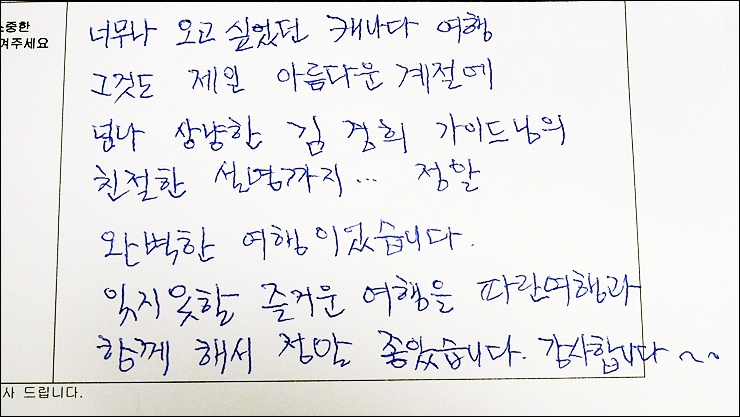 소중한
여주세요
너무나 오고 싶었던 캐나다 여행
그것도 제일 아름다운 계절에
넘나 상냥한 김경희 가이드님의
친절한 설명까지... 정말
완벽한 여행이었습니다.
잊지 못할 즐거운 여행을 파란여행과
함께 해서 정말 좋았습니다. 감사합니다~
사 드립니다.